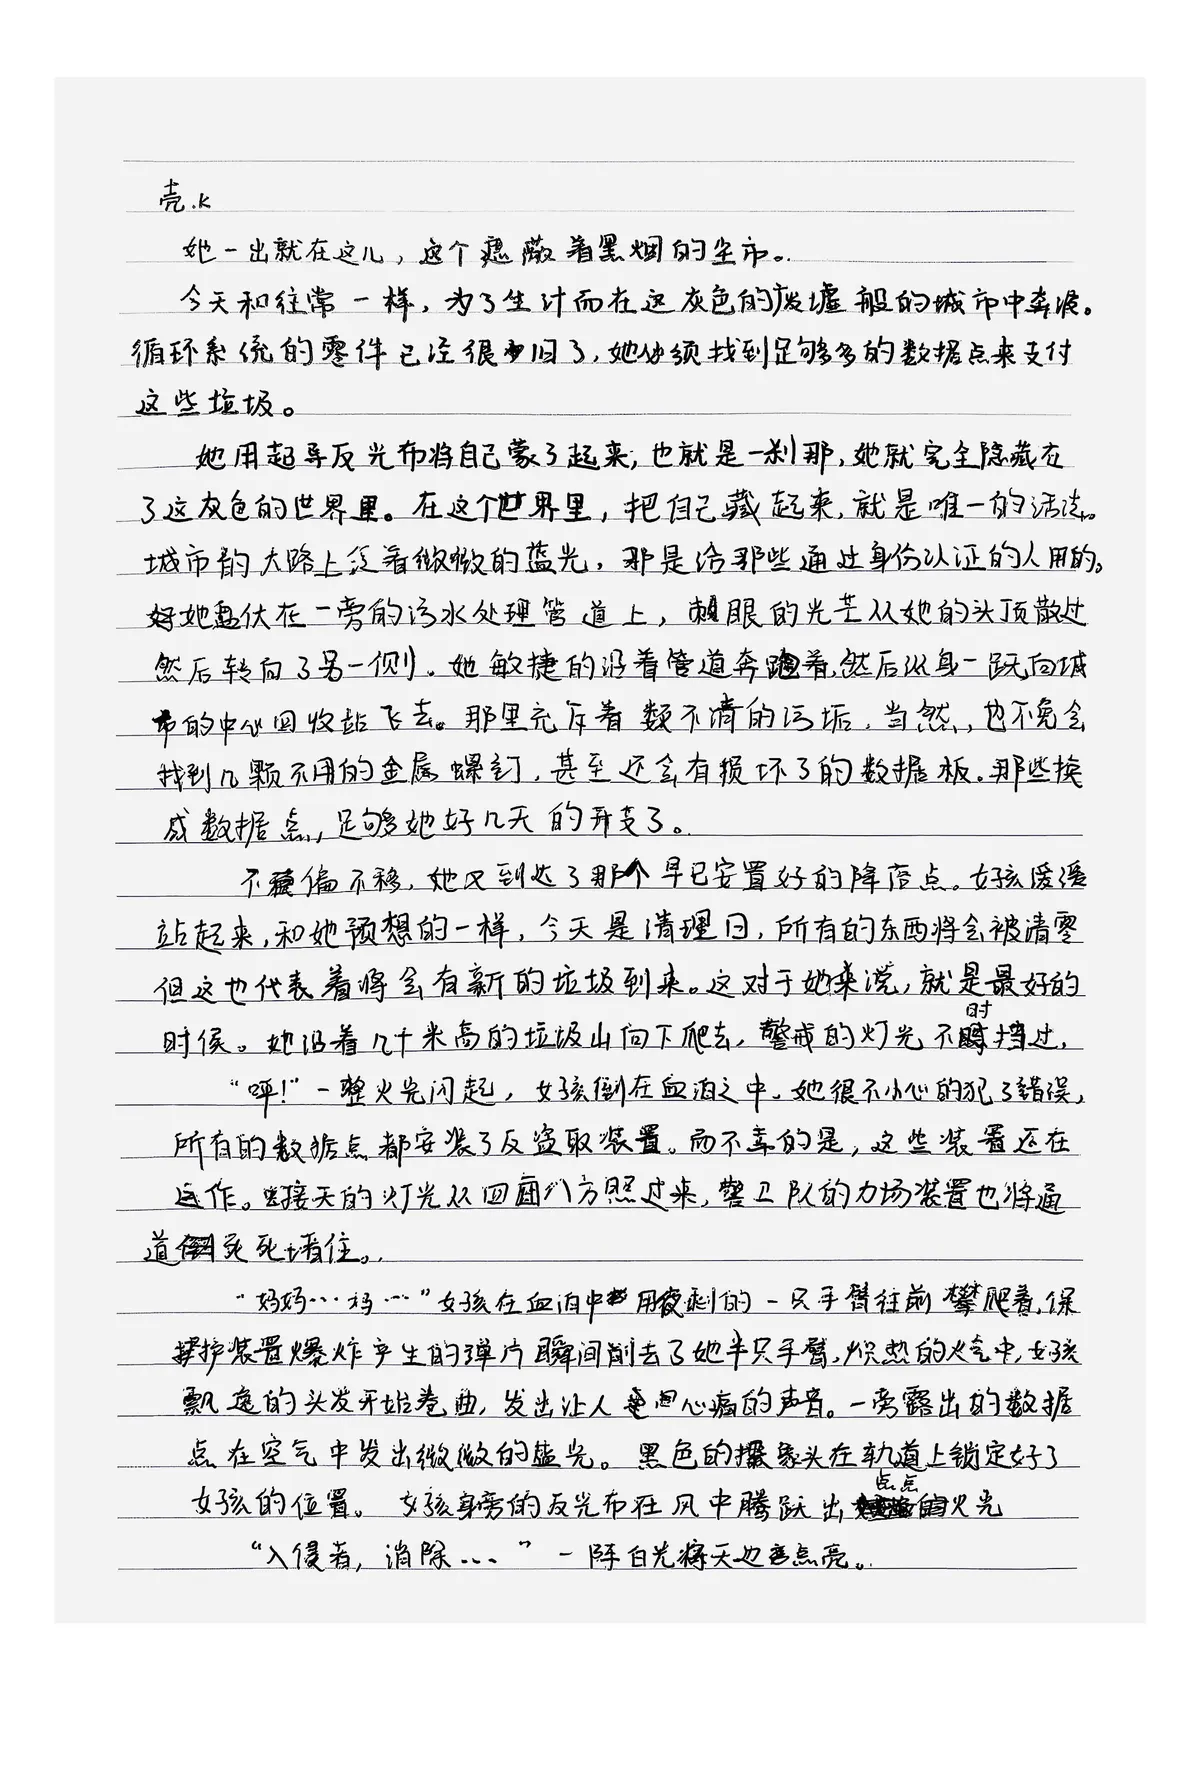 壳.K
她一出就在这儿，这个遮蔽着黑烟的尘市。
今天和往常一样，为了生计而在这灰色的废墟般的城市中奔波。
循环系统的零件已经很旧了，她必须找到足够多的数据点来支付
这些垃圾。
她用超导反光布将自己蒙了起来，也就是一刹那，她就完全隐藏在
了这灰色的世界里。在这个世界里，把自己藏起来，就是唯一的活法。
城市的大路上泛着微微的蓝光，那是给那些通过身份认证的人用的。
她盘伏在一旁的污水处理管道上，刺眼的光芒从她的头顶散过
然后转向了另一侧。她敏捷的沿着管道奔跑着，然后纵身一跃向城
市的中心回收站飞去。那里充斥着数不清的污垢，当然，也不免会
找到几颗不用的金属螺钉，甚至还会有损坏了的数据板。那些换
成数据点，足够她好几天的开支了。
不偏不移，她又到达了那个早已安置好的降落点。女孩缓缓
站起来，和她预想的一样，今天是清理日，所有的东西将会被清零
但这也代表着将会有新的垃圾到来。这对于她来说，就是最好的
时候。她沿着几十米高的垃圾山向下爬去，警戒的灯光不时挡过，
“呯！”一整火光闪起，女孩倒在血泊之中。她很不小心的犯了错误，
所有的数据点都安装了反盗取装置。而不幸的是，这些装置还在
运作。接天的灯光从四面八方照过来，警卫队的力场装置也将通
道死死堵住。
“妈妈…妈…”女孩在血泊中用剩的一只手臂往前攀爬着，保
护装置爆炸产生的弹片瞬间削去了她半只手臂，炽热的火气中，女孩
飘逸的头发开始卷曲，发出让人心痛的声音。一旁露出的数据
点在空气中发出微微的蓝光。黑色的摄象头在轨道上锁定好了
女孩的位置。女孩身旁的反光布在风中腾跃出点点的火光
“入侵者，消除…”一阵白光将天也点亮。